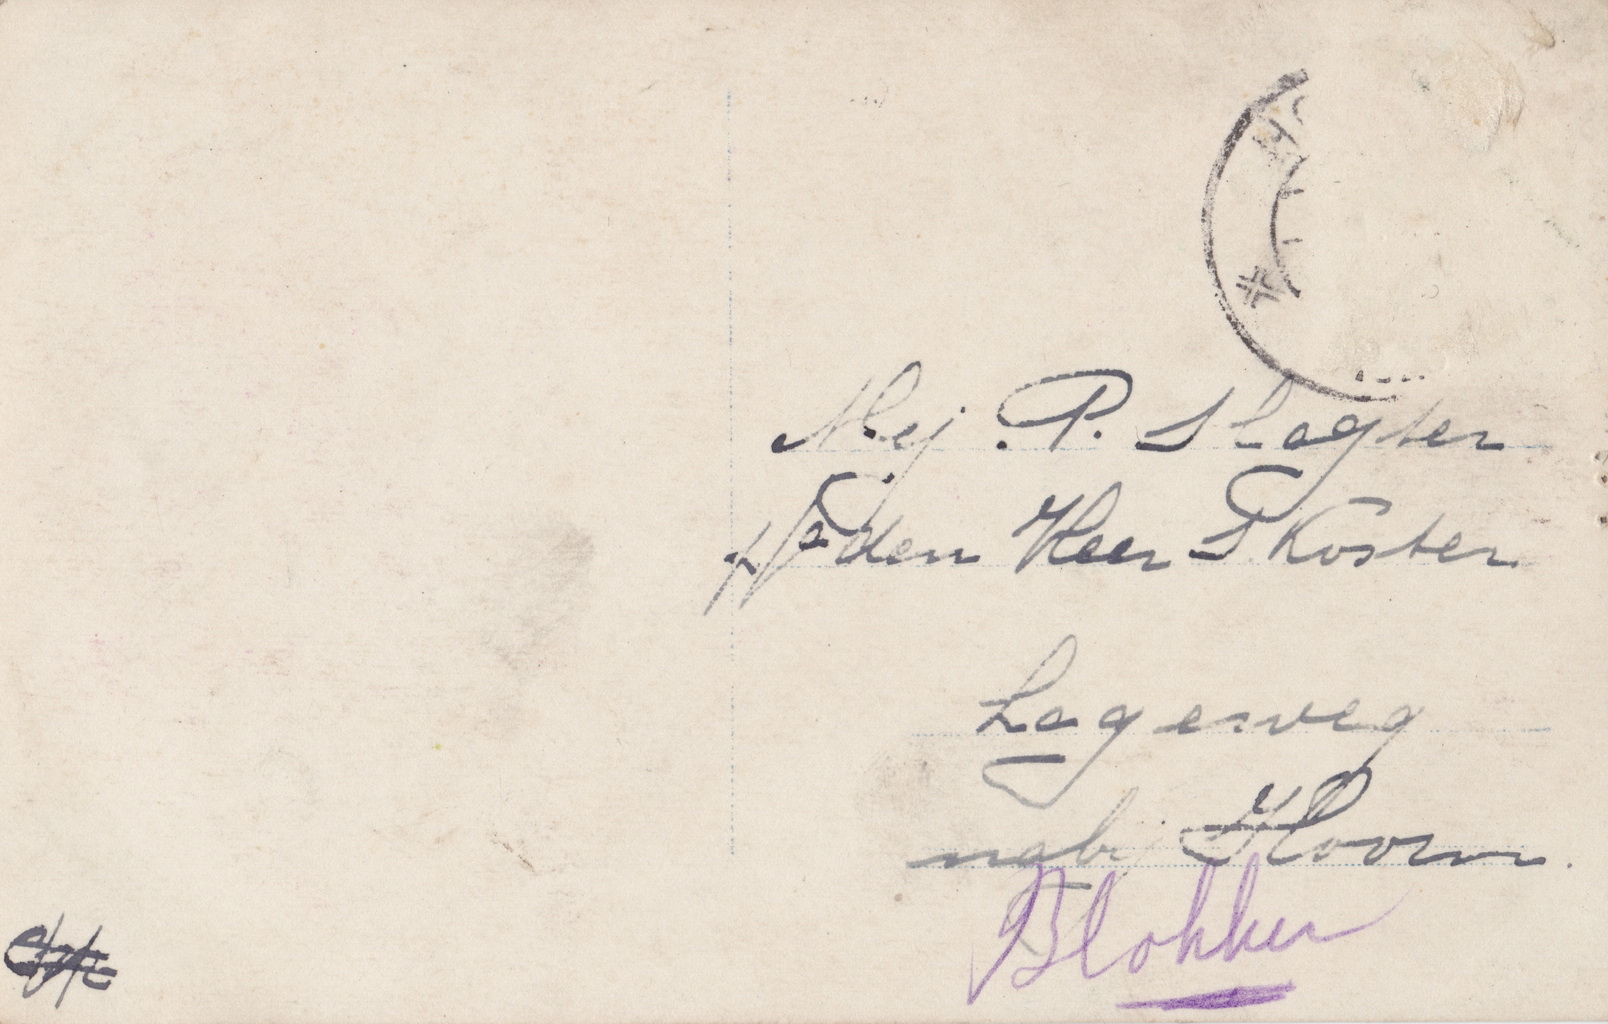 Mej. P. Slagter
p/a den Heer S Koster
Lageweg
nabij Hoorn.
Blokker